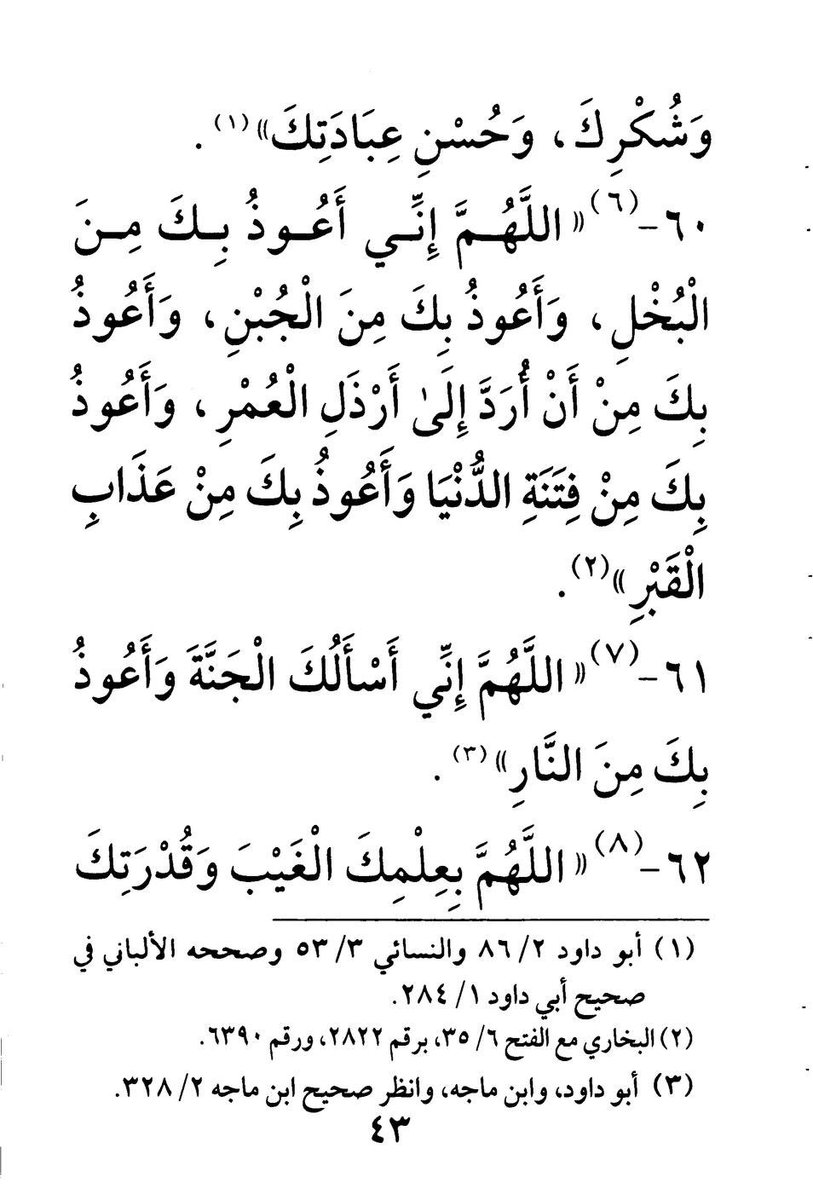 وَشُكْرِكَ، وَحُسْنِ عِبَادَتِكَ»(١).
٦٠-(٦)«اللَّهُمَّ إِنِّي أَعُوذُ بِكَ مِنَ
الْبُخْلِ، وَأَعُوذُ بِكَ مِنَ الْجُبْنِ، وَأَعُوذُ
بِكَ مِنْ أَنْ أُرَدَّ إِلَىٰ أَرْذَلِ الْعُمْرِ، وَأَعُوذُ
بِكَ مِنْ فِتَنَةِ الدُّنْيَا وَأَعُوذُ بِكَ مِنْ عَذَابِ
الْقَبْرِ»(٢).
٦١-(٧)«اللَّهُمَّ إِنِّي أَسْأَلُكَ الْجَنَّةَ وَأَعُوذُ
بِكَ مِنَ النَّارِ»(٣).
٦٢-(٨)«اللَّهُمَّ بِعِلْمِكَ الْغَيْبَ وَقُدْرَتِكَ
(١) أبو داود ٢/ ٨٦ والنسائي ٣/ ٥٣ وصححه الألباني في
صحيح أبي داود ١/ ٢٨٤.
(٢) البخاري مع الفتح ٦/ ٣٥، برقم ٢٨٢٢، ورقم ٦٣٩٠.
(٣) أبو داود، وابن ماجه، وانظر صحيح ابن ماجه ٢/ ٣٢٨.
٤٣